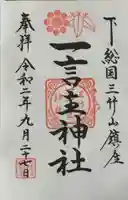 下総国三竹山鎮座
一言主神社
奉拝 令和二年九月二十七日